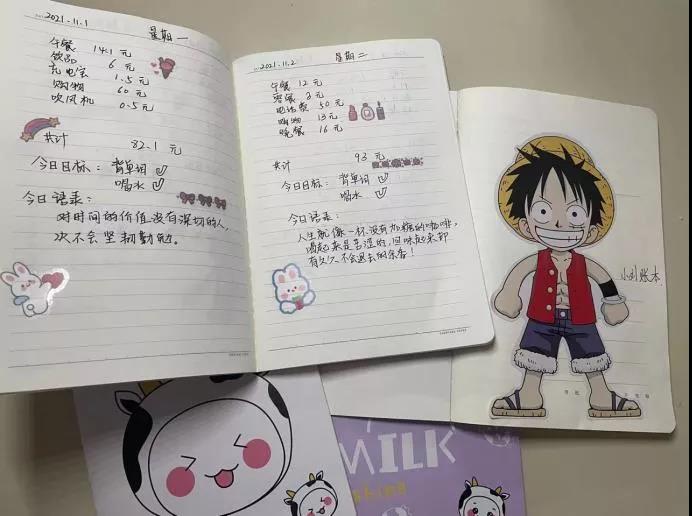 2021.11.1
星期一
午餐 14.1 元
饮品 6 元
充电宝 1.5 元
购物 60 元
吹风机 0.5元
共计 82.1 元
今日目标: 背单词 ✓
喝水 ✓
今日语录:
对时间的价值没有深切的人,
次不会坚韧勤勉。
2021.11.2 星期二
午餐 12元
零食 2元
电话费 50元
购物 13元
晚餐 16元
共计 93 元
今日目标: 背单词 ✓
喝水 ✓
今日语录:
人生就像一杯没有加糖的咖啡,
喝起来是苦涩的,回味起来却
有久久不会退去的余香!
小刘账本
MILK